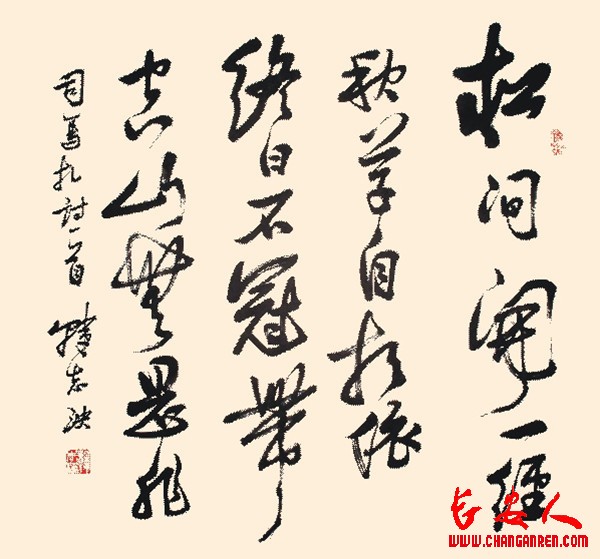 松间開一徑
秋草自相依
終日不冠帶
空山無是非
司馬扎詩一首
长安人
WWW.CHANGANREN.COM